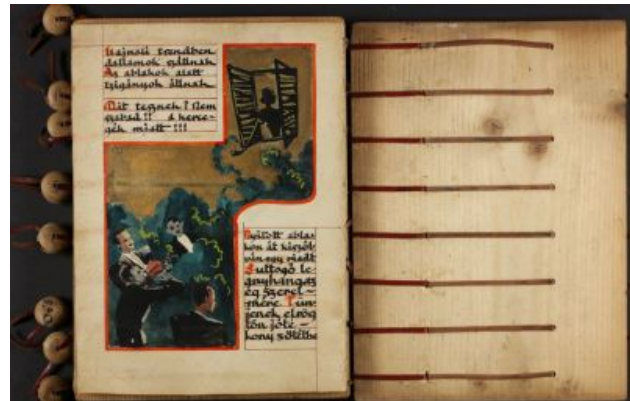 Hajnali csendben
dallamok szállnak
Az ablakok alatt
czigányok állnak
Mit tesznek? Nem
szabad!! A herce-
gék miatt!!!
Nyitott ablak-
kon át kiszól-
vón egy riadt
Suttogó le-
ányhangaz
ég szerel-
mére
jenek elrög
tön jóté-
kony sötétbe